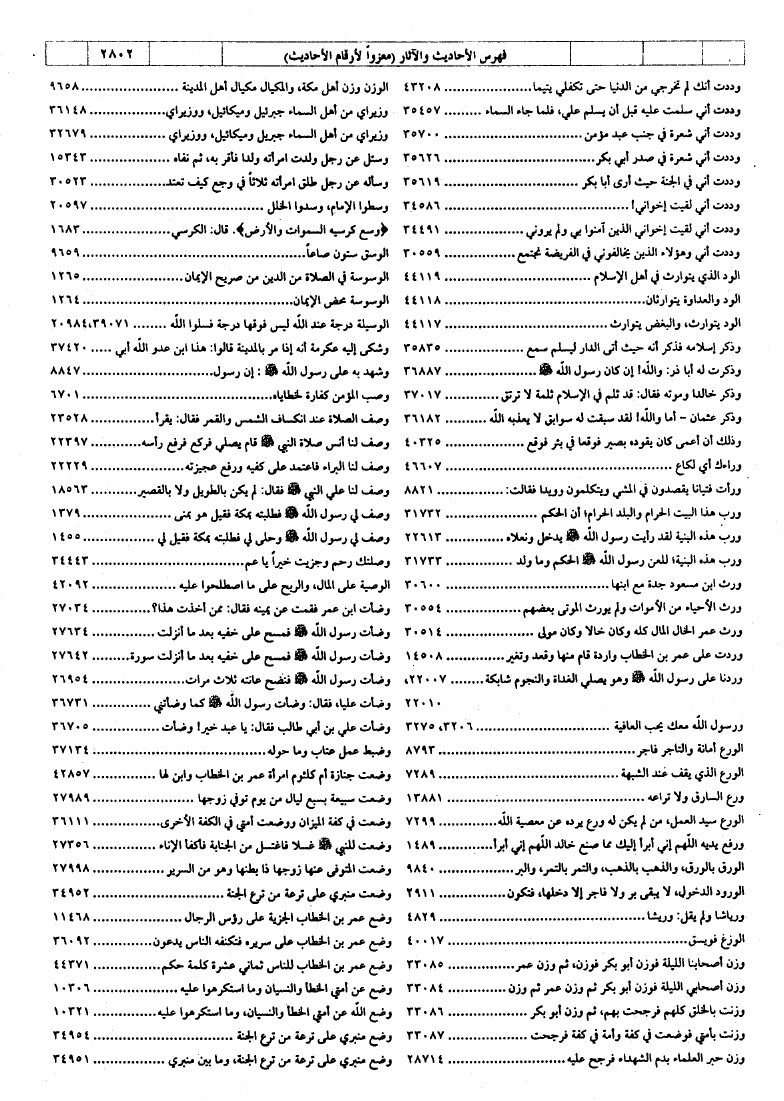 فهرس الأحاديث والآثار (معزواً لأرقام الأحاديث)
٢٨٠٢
وددت أنك لم تخرجي من الدنيا حتى تكفلي يتيما ٤٣٢٠٨
وددت أني سلمت عليه قبل أن يسلم علي، فلما جاء السماء ٣٥٤٥٧
وددت أني شعرة في جنب عبد مؤمن ٣٥٧٠٠
وددت أني شعرة في صدر أبي بكر ٣٥٦٢٦
وددت أني في الجنة حيث أرى أبا بكر ٣٥٦١٩
وددت أني لقيت إخواني! ٣٤٥٨٦
وددت أني لقيت إخواني الذين آمنوا بي ولم يروني ٣٤٤٩١
وددت أني وهؤلاء الذين يخالفوني في الفريضة نجتمع ٣٠٥٥٩
الود الذي يتوارث في أهل الإسلام ٤٤١١٩
الود والعداوة يتوارثان ٤٤١١٨
الود يتوارث، والبغض يتوارث ٤٤١١٧
وذكر إسلامه فذكر أنه حيث أتى الدار ليسلم سمع ٣٥٨٣٥
وذكرت له أبا ذر: والله! إن كان رسول الله ﷺ ٣٦٨٨٧
وذكر خالدا وموته فقال: قد ثلم في الإسلام ثلمة لا ترتق ٣٧٠١٧
وذكر عثمان - أما والله! لقد سبقت له سوابق لا يعذبه الله ٣٦١٨٢
وذلك أن أعمى كان يقوده بصير فوقعا في بئر فوقع ٤٠٣٢٥
وراءك أي لكاع ٤٦٦٠٧
ورأت فتيانا يقصدون في المشي ويتكلمون رويدا فقالت: ٨٨٢١
ورب هذا البيت الحرام والبلد الحرام؛ أن الحكم ٣١٧٣٢
ورب هذه البنية لقد رأيت رسول الله ﷺ يدخل ونعلاه ٢٢٦١٣
ورب هذه البنية؛ للعن رسول الله ﷺ الحكم وما ولد ٣١٧٣٣
ورث ابن مسعود جدة مع ابنها ٣٠٦٠٠
ورث الأحياء من الأموات ولم يورث الموتى بعضهم ٣٠٥٥٤
ورث عمر الخال المال كله وكان خالا وكان مولى ٣٠٥١٤
وردت على عمر بن الخطاب واردة قام منها وقعد وتغير ١٤٥٠٨
وردنا على رسول الله ﷺ وهو يصلي الغداة والنجوم شابكة ٢٢٠٠٧،
٢٢٠١٠
ورسول الله معك يحب العافية ٣٢٠٦، ٣٢٧٥
الورع أمانة والتاجر فاجر ٨٧٩٣
الورع الذي يقف عند الشبهة ٧٢٨٩
ورع السارق ولا تراعه ١٣٨٨١
الورع سيد العمل، من لم يكن له ورع يرده عن معصية الله ٧٢٩٩
ورفع يديه اللهم إني أبرأ إليك مما صنع خالد اللهم إني أبرأ ١٤٨٩
الورق بالورق، والذهب بالذهب، والتمر بالتمر، والبر ٩٨٤٠
الورود الدخول، لا يبقى بر ولا فاجر إلا دخلها، فتكون ٢٩١١
ورياشا ولم يقل: وريشا ٤٨٢٩
الوزغ فويسق ٤٠٠١٧
وزن أصحابنا الليلة فوزن أبو بكر فوزن، ثم وزن عمر ٣٣٠٨٥
وزن أصحابي الليلة فوزن أبو بكر ثم وزن عمر ثم وزن ٣٣٠٨٤
وزنت بالخلق كلهم فرجحت بهم، ثم وزن أبو بكر ٣٣٠٨٦
وزنت بأمتي فوضعت في كفة وأمة في كفة فرجحت ٣٣٠٨٧
وزن حبر العلماء بدم الشهداء فرجح عليه ٢٨٧١٤
الوزن وزن أهل مكة، والمكيال مكيال أهل المدينة ٩٦٥٨
وزيراي من أهل السماء جبرئيل وميكائيل، ووزيراي ٣٦١٤٨
وزيراي من أهل السماء جبريل وميكائيل، ووزيراي ٣٢٦٧٩
وسئل عن رجل ولدت امرأته ولدا فأقر به، ثم نفاه ١٥٣٤٣
وسأله عن رجل طلق امرأته ثلاثاً في وجع كيف تعتد ٣٠٥٢٣
وسطوا الإمام، وسدوا الخلل ٢٠٥٩٧
﴿وسع كرسيه السموات والأرض﴾. قال: الكرسي ١٦٨٣
الوسق ستون صاعاً ٩٦٥٩
الوسوسة في الصلاة من الدين من صريح الإيمان ١٢٦٥
الوسوسة محض الإيمان ١٢٦٤
الوسيلة درجة عند الله ليس فوقها درجة فسلوا الله ٣٩٠٧١، ٢٠٩٨٤
وشكى إليه عكرمة أنه إذا مر بالمدينة قالوا: هذا ابن عدو الله أبي ٣٧٤٢٠
وشهد به على رسول الله ﷺ : إن رسول ٨٨٤٧
وصب المؤمن كفارة لخطاياه ٦٧٠١
وصف الصلاة عند انكساف الشمس والقمر فقال: يقرأ ٢٣٥٢٨
وصف لنا أنس صلاة النبي ﷺ قام يصلي فركع فرفع رأسه ٢٢٣٩٧
وصف لنا البراء فاعتمد على كفيه ورفع عجيزته ٢٢٢٢٩
وصف لنا علي النبي ﷺ فقال: لم يكن بالطويل ولا بالقصير ١٨٥٦٣
وصف لي رسول الله ﷺ فطلبته بمكة فقيل هو بمنى ١٣٧٩
وصف لي رسول الله ﷺ وحلى لي فطلبته بمكة فقيل لي ١٤٥٥
وصلتك رحم وجزيت خيراً يا عم ٣٤٤٤٣
الوصية على المال، والربح على ما اصطلحوا عليه ٤٢٠٩٢
وضأت ابن عمر فقمت عن يمينه فقال: ممن أخذت هذا؟ ٢٧٠٣٤
وضأت رسول الله ﷺ فمسح على خفيه بعد ما أنزلت ٢٧٦٣٤
وضأت رسول الله ﷺ فمسح على خفيه بعد ما أنزلت سورة ٢٧٦٤٢
وضأت رسول الله ﷺ فنضح عانته ثلاث مرات ٢٦٩٥٤
وضأت عليا، فقال: وضأت رسول الله ﷺ كما وضأتني ٣٦٧٣١
وضأت علي بن أبي طالب فقال: يا عبد خير! وضأت ٣٦٧٠٥
وضبط عمل عتاب وما حوله ٣٧١٣٤
وضعت جنازة أم كلثوم امرأة عمر بن الخطاب وابن لها ٤٢٨٥٧
وضعت سبيعة بسبع ليال من يوم توفي زوجها ٢٧٩٨٩
وضعت في كفة الميزان ووضعت أمتي في الكفة الأخرى ٣٦١١١
وضعت للنبي ﷺ غسلا فاغتسل من الجنابة فأكفأ الإناء ٢٧٣٥٦
وضعت المتوفى عنها زوجها ذا بطنها وهو من السرير ٢٧٩٩٨
وضعت منبري على ترعة من ترع الجنة ٣٤٩٥٢
وضع عمر بن الخطاب الجزية على رؤس الرجال ١١٤٦٨
وضع عمر بن الخطاب على سريره فتكنفه الناس يدعون ٣٦٠٩٢
وضع عمر بن الخطاب للناس ثماني عشرة كلمة حكم ٤٤٣٧١
وضع عن أمتي الخطأ والنسيان وما استكرهوا عليه ١٠٣٠٦
وضع الله عن أمتي الخطأ والنسيان، وما استكرهوا عليه ١٠٣٢١
وضع منبري على ترعة من ترع الجنة ٣٤٩٥٤
وضع منبري على ترعة من ترع الجنة، وما بين منبري ٣٤٩٥١